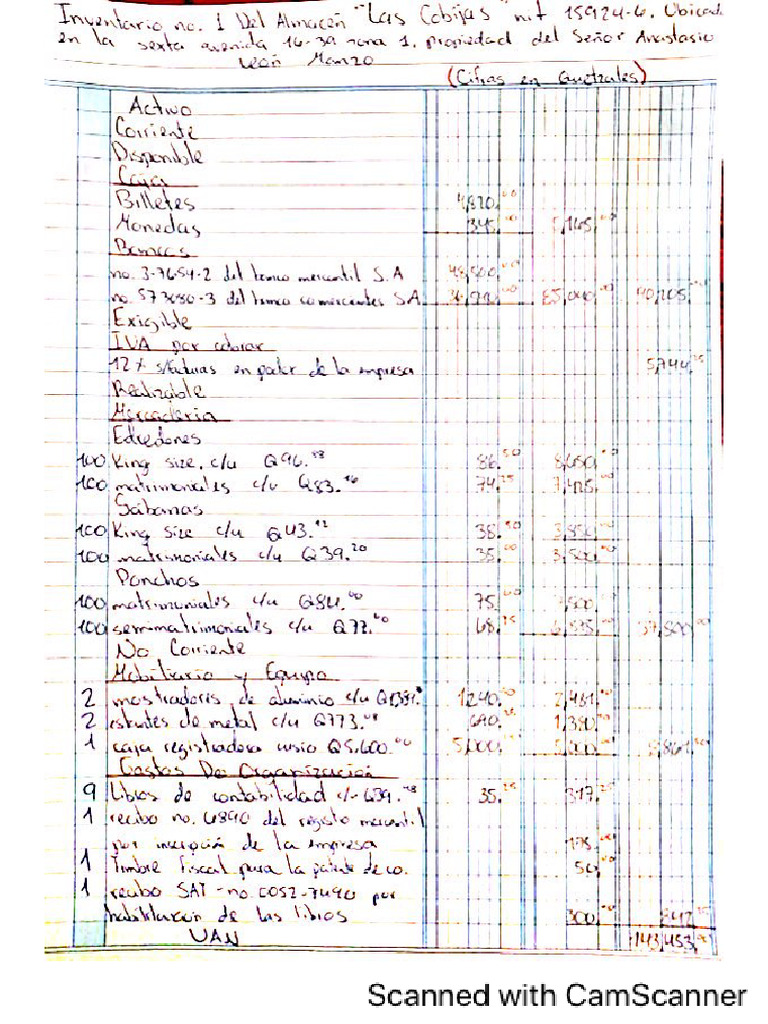 Inventario no. 1 Del Almacén "Las Cobijas" nit 15924-6. Ubicado
en la sexta avenida 14-39 zona 1. propiedad del Señor Anastasio
León Manzo
(Cifras en Quetzales)
Activo
Corriente
Disponible
Caja
Billetes 4,820.00
Monedas 345.00 5,165.00
Bancos
no. 3-7654-2 del banco mercantil S.A 48,500.00
no. 573486-3 del banco comerciantes SA 85,040.00 90,205.00
Exigible
IVA por cobrar
12% s/facturas en poder de la empresa 5,744.25
Realizable
Mercadería
Edredones
100 King size. c/u Q96.88 86.50 8,650.00
100 matrimoniales c/u Q83.16 74.25 7,425.00
Sabanas
100 King size c/u Q43.12 38.50 3,850.00
100 matrimoniales c/u Q39.20 35.00 3,500.00
Ponchos
100 matrimoniales c/u Q84.00 75.00 7,500.00
100 semimatrimoniales c/u Q77.00 68.75 37,800.00
No Corriente
Mobiliario y Equipo
2 mostradores de aluminio c/u 1240.50 2,481.00
2 estantes de metal c/u Q773.08 690.25 1,380.50
1 caja registradora Q5.600.00 5,000.00 5,000.00
Gastos De Organización
9 Libros de contabilidad c/u Q39.48 35.25 317.25
1 recibo no. 4890 del registro mercantil
por inscripción de la empresa 175.00
1 Timbre fiscal para la patente de co. 50.00
1 recibo SAT-no. 0052-7490 por
habilitación de los libros 300.00 842.25
VAN 143,453.00
Scanned with CamScanner